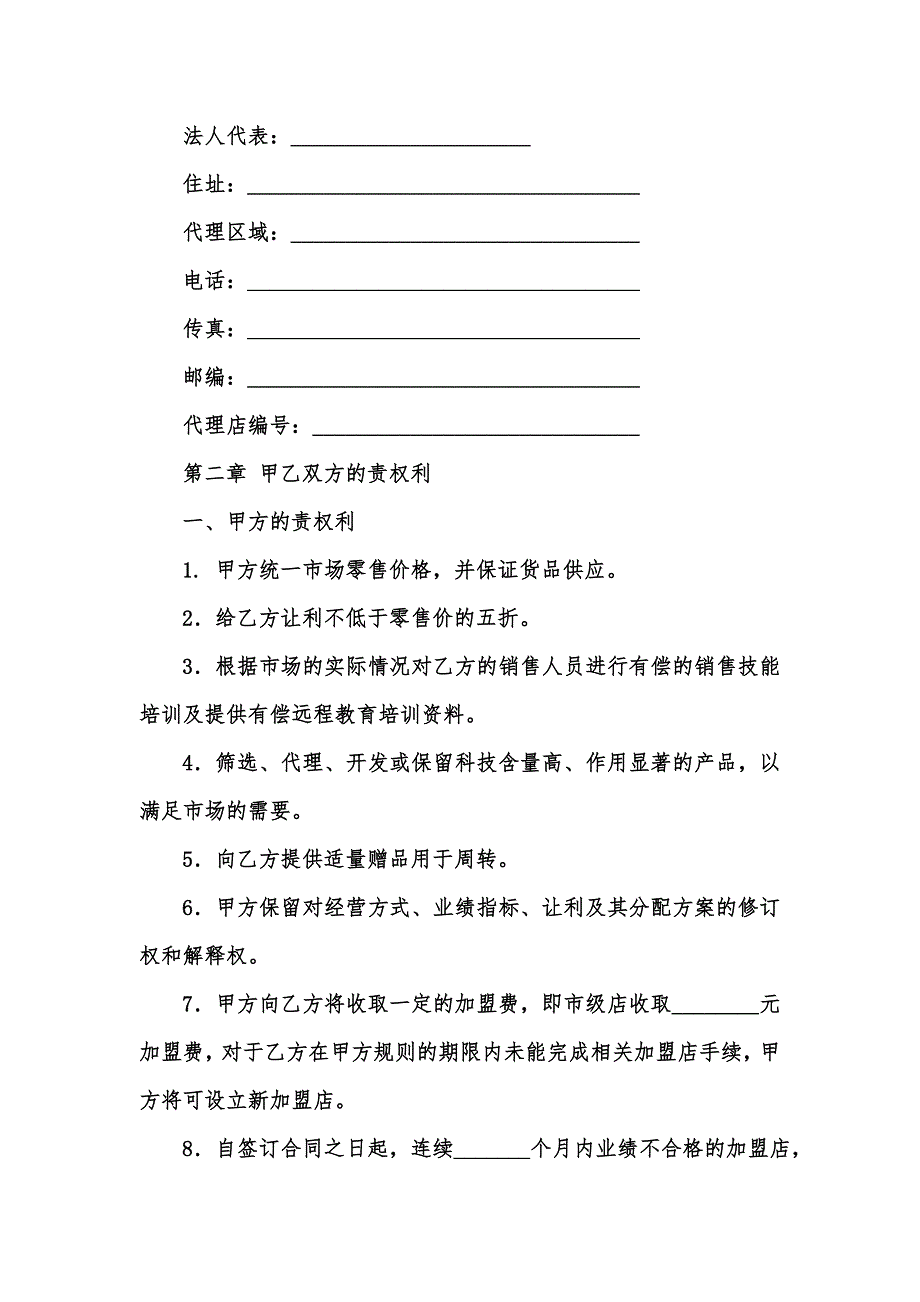 法人代表：______________________
住址：____________________________________
代理区域：________________________________
电话：____________________________________
传真：____________________________________
邮编：____________________________________
代理店编号：______________________________
第二章 甲乙双方的责权利
一、甲方的责权利
1. 甲方统一市场零售价格，并保证货品供应。
2．给乙方让利不低于零售价的五折。
3．根据市场的实际情况对乙方的销售人员进行有偿的销售技能
培训及提供有偿远程教育培训资料。
4．筛选、代理、开发或保留科技含量高、作用显著的产品，以
满足市场的需要。
5．向乙方提供适量赠品用于周转。
6．甲方保留对经营方式、业绩指标、让利及其分配方案的修订
权和解释权。
7．甲方向乙方将收取一定的加盟费，即市级店收取________元
加盟费，对于乙方在甲方规则的期限内未能完成相关加盟店手续，甲
方将可设立新加盟店。
8．自签订合同之日起，连续_______个月内业绩不合格的加盟店，